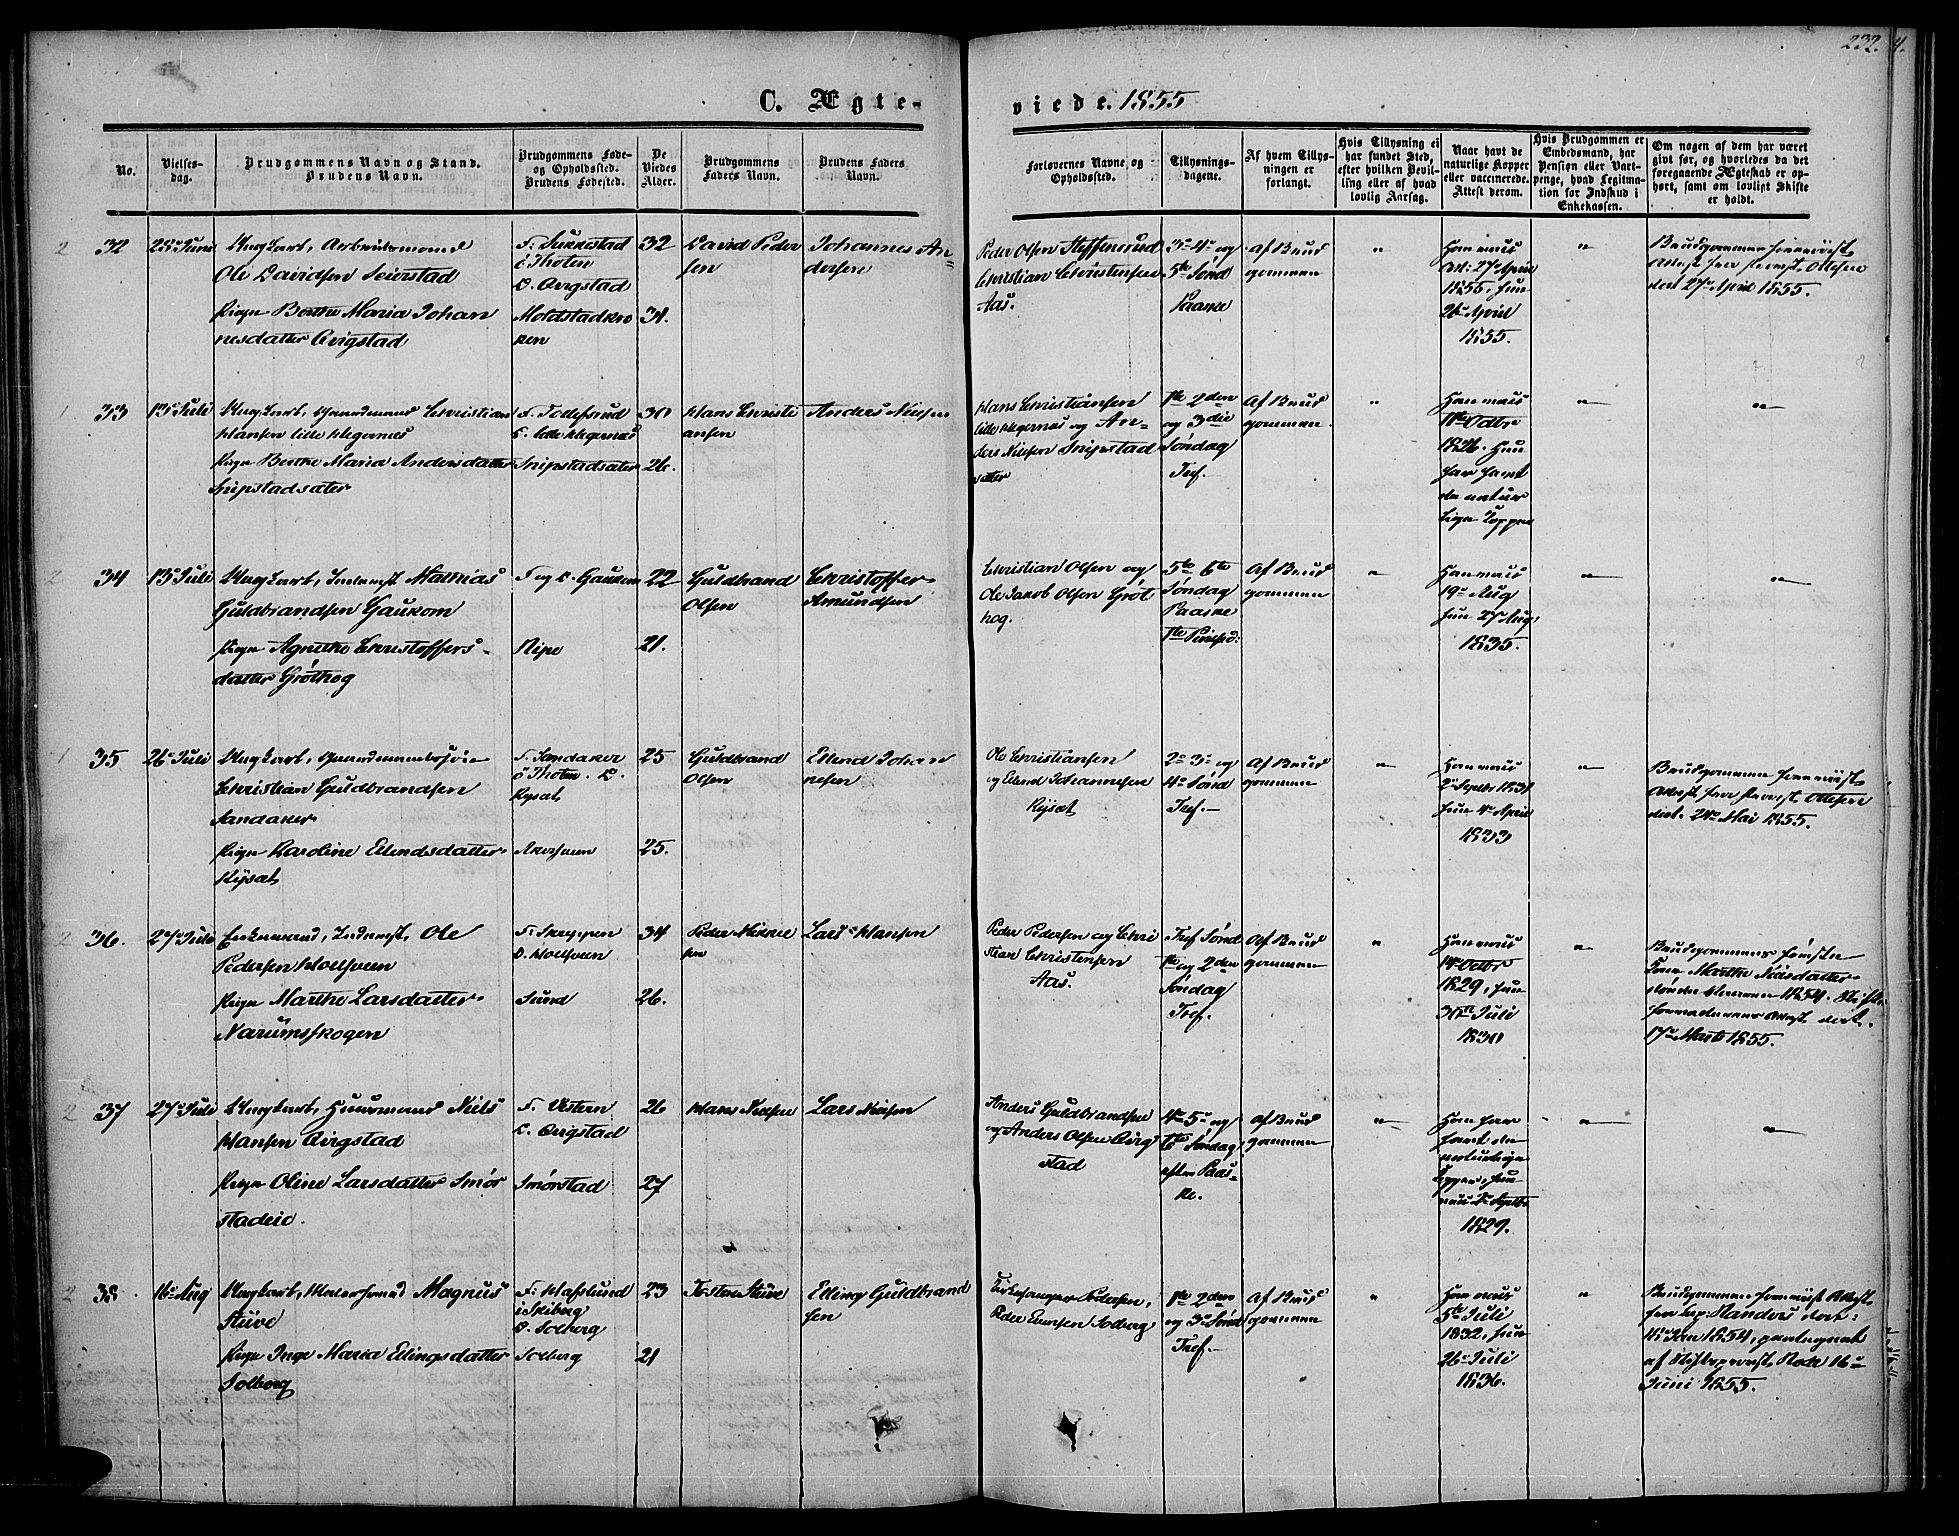 232. 4.
C. Ægte-
viede. 1855
No.
Vielses-
dag.
Brudgommens Navn og Stand.
Brudens Navn.
Brudgommens Føde-
og Opholdssted.
Brudens Fødested.
De
Viedes
Alder.
Brudgommens
Faders Navn.
Brudens Faders
Navn.
Forlovernes Navne og
Opholdssted.
Tillysnings-
dagene.
Af hvem Tillys-
ningen er
forlangt.
Hvis Tillysning ei
har fundet Sted,
efter hvilken Bevil-
ling eller af hvad
lovlig Aarsag.
Naar havt de
naturlige Kopper
eller vaccinerede.
Attest derom.
Hvis Brudgommen er
Embedsmand, har
Pension eller Vart-
penge, hvad Legitma-
tion for Indskud i
Enkekassen.
Om nogen af dem har været
givt før, og hvorledes da det
foregaaende Ægteskab er op-
hørt, samt om lovligt Skifte
er holdt.
2 32 Juni
Ungkarl, Arbeidsmand
Ole Davidsen Seierstad
Pigen Berthe Maria Johan
nesdatter Qvigstad
F.
i Thoten
O. Qvigstad
32
31.
David Peder
sen
Johannes An-
dersen
Peder Olsen Steffensrud
Christian Christensen
Aas.
3die 4de og
5te Sønd
Paaske
Af Brud
gommen
"
Han vacc
Att: 27de April
1855, hun
26de April
1855.
"
Brudgommen fremviist
Attest fra Provst Ottesen
dat 27de April 1855.
1 33 13de Juli
Ungkarl, Gaardmand Christian
Hansen lille Hegernæs
Pigen Berthe Maria Andersdatter
Snipstadsæter
F. Tollefsrud
O. lille Hegernæs
Snipstadsæter
30
26.
Hans Christi
ansen
Anders Nielsen
Hans Christiansen
lille Hegernæs og An-
ders Nielsen Snipstad
sæter
1ste 2den
og 3die
Søndag
Tref.
Af Brud
gommen
"
Han vacc
11te Octbr
1826. Hun
har havt
de natur
lige Kopper
"
"
2 34 13de Juli
Ungkarl, Inderst Mathias
Guldbrandsen Gaukom
Pigen Agnethe Christoffers-
datter Grøthog
F og O. Gaukom
Ripe
22
21.
Guldbrand
Olsen
Christoffer
Amundsen
Christian Olsen og
Ole Jakob Olsen Grøt
hog.
5te 6te
Søndag
Paaske
1ste Pintsed:
Af Brud
gommen
"
Han vacc
19de Aug
hun 27de Aug
1835.
"
"
1 35 26de Juli
Ungkarl, Gaardmandssøn
Christian Guldbrandsen
Sandaker
Pigen Karoline Erlendsdatter
Rysæt
F. Sandaker
i Thoten. O.
Rysæt
25
25.
Guldbrand
Olsen
Erlend Johan
nesen
Ole Christiansen
og Erlend Johannesen
Rysæt
2de 3die og
4de Sønd
Tref.
Af Brud
gommen
"
Han vacc
2den Septbr 1831
hun 4de April
1833
"
Brudgommen fremviist
Attest fra Provst Ottesen
dat. 24de Mai 1855.
2 36. 27de Juli
Enkemand, Inderst, Ole
Pedersen Holsveen
Pigen Marthe Larsdatter
Narumsskogen
F. Skryppen
O. Holsveen
Sund
34
26.
Peder Mikkel
sen
Lars Hansen
Peder Pedersen og Chri
stian Christensen
Aas.
Tref Sønd
1ste og 2den
Søndag
Tref.
Af Brud
gommen
"
Han vacc
14de Octbr
1829, hun
30te Juli
1830
"
Brudgommens første
Kone Marthe Nilsdatter
døde 1854. Skifte
forvalterens Attest dat.
17de Marts 1855.
2 37 27de Juli
Ungkarl, Huusmand Niels
Hansen Qvigstad
Pigen Oline Larsdatter Smør
stadeie.
F. Vestern
O. Qvigstad
Smørstad
26
27
Hans Nielsen
Lars Nielsen
Anders Guldbrandsen
og Anders Olsen Qvig
stad
4de 5te og
6te Søndag
efter Paas-
ke.
Af Brud
gommen
"
Han har
havt de
naturlige
Kopper, hun
vacc Septbr
1829.
"
"
2 38 16de Aug
Ungkarl, Magnus
Stuve
Pige Inge Maria Ellingsdatter
Solberg
F. Hafslund
i Skiberg
O. Solberg
Solberg
23
21
Torsten Stuve
Elling Guldbrand
sen
Kirkesanger Pedersen,
Peder Evensen Solberg
1ste 2den
og 3de Sønd
Tref.
Af Brud
gommen
"
Han vacc
5te Juli
1832, hun
26de Juli
1836.
"
Brudgommen fremviist Attest
fra dat:
1854, paategnet
af Stiftsprovst Rode 16de
Juni 1855.